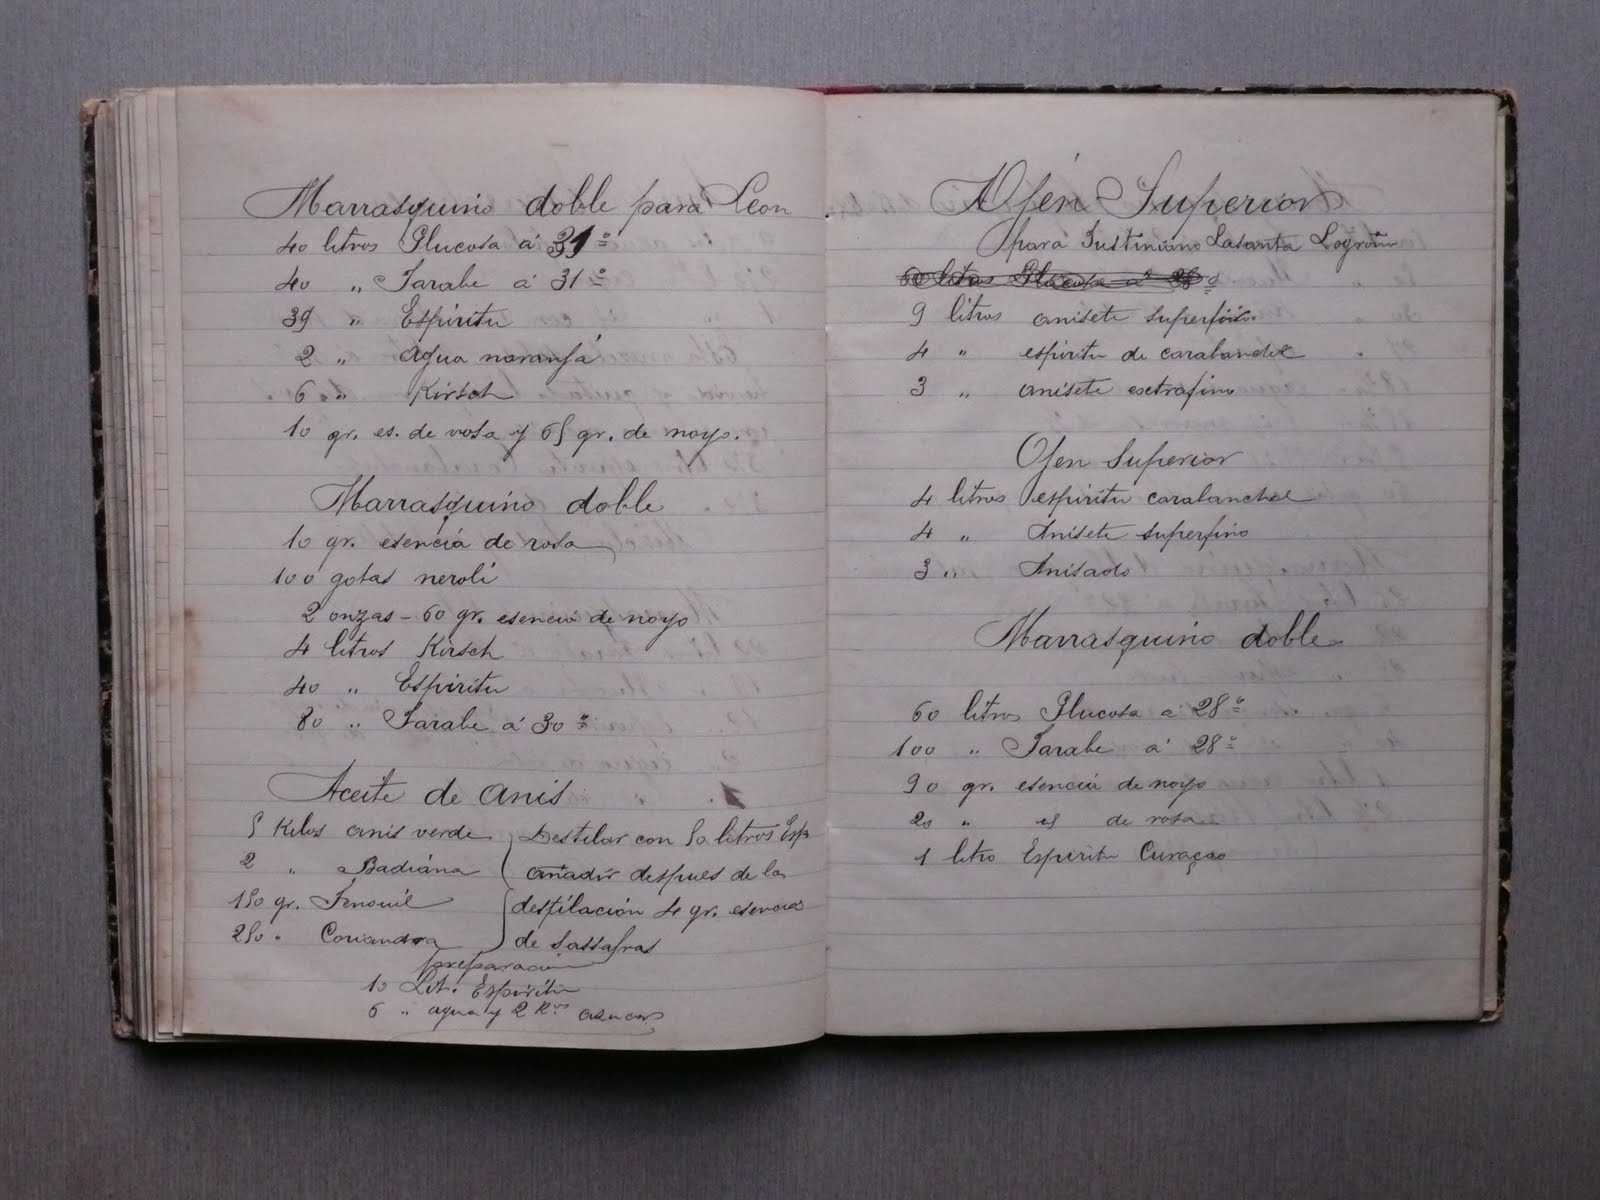 Marrasquino doble para Leon
40 litros Glucosa á 31º
40 " Jarabe á 31º
39 " Espiritu
2 " agua naranja
6 " Kirsch
10 gr. es. de rosa y 65 gr. de noyo.
Marrasquino doble
10 gr. esencia de rosa
100 gotas neroli
2 onzas - 60 gr. esencia de noyo
4 litros Kirsch
40 " Espiritu
80 " Jarabe á 30º
Aceite de anis
5 Kilos anis verde
2 " Badiána
150 gr. Fenouil
250 " Coriandra
Destilar con 50 litros Esp.
añadir despues de la
destilación 4 gr. esencia
de sassafras
preparacion
10 Lit. Espiritu
6 " agua y 2 Kos azucar
Ojén Superior
para Justiniano Lasanta Logroño
60 litros Glucosa á º
9 litros anisete superfino.
4 " espiritu de carabanchel
3 " anisete esctrafino
Ojen Superior
4 litros espiritu carabanchel
4 " Anisete superfino
3 " Anisado
Marrasquino doble
60 litros Glucosa á 28º
100 " Jarabe á 28º
90 gr. esencia de noyo
20 " id de rosa
1 litro Espiritu Curaçao